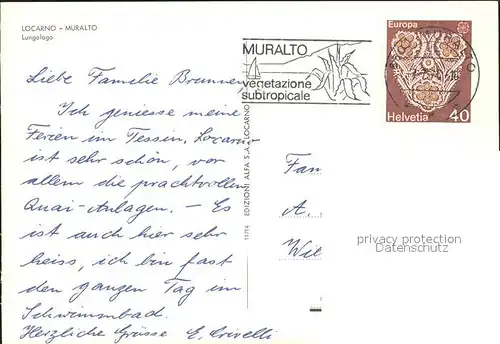 LOCARNO - MURALTO
Lungolago
Liebe Familie Brunner,
Ich geniesse meine
Ferien im Tessin, Locarno
ist sehr schön, vor
allem die prachtvollen
Quai-Anlagen. - Es
ist auch hier sehr
heiss, ich bin fast
den ganzen Tag im
Schwimmbad.
Herzliche Grüsse E. Crivelli
11714 EDIZIONI ALFA S.A. LOCARNO
MURALTO
vegetazione
subtropicale
Europa
Helvetia 40
Fam
A.
Wil
privacy protection
Datenschutz